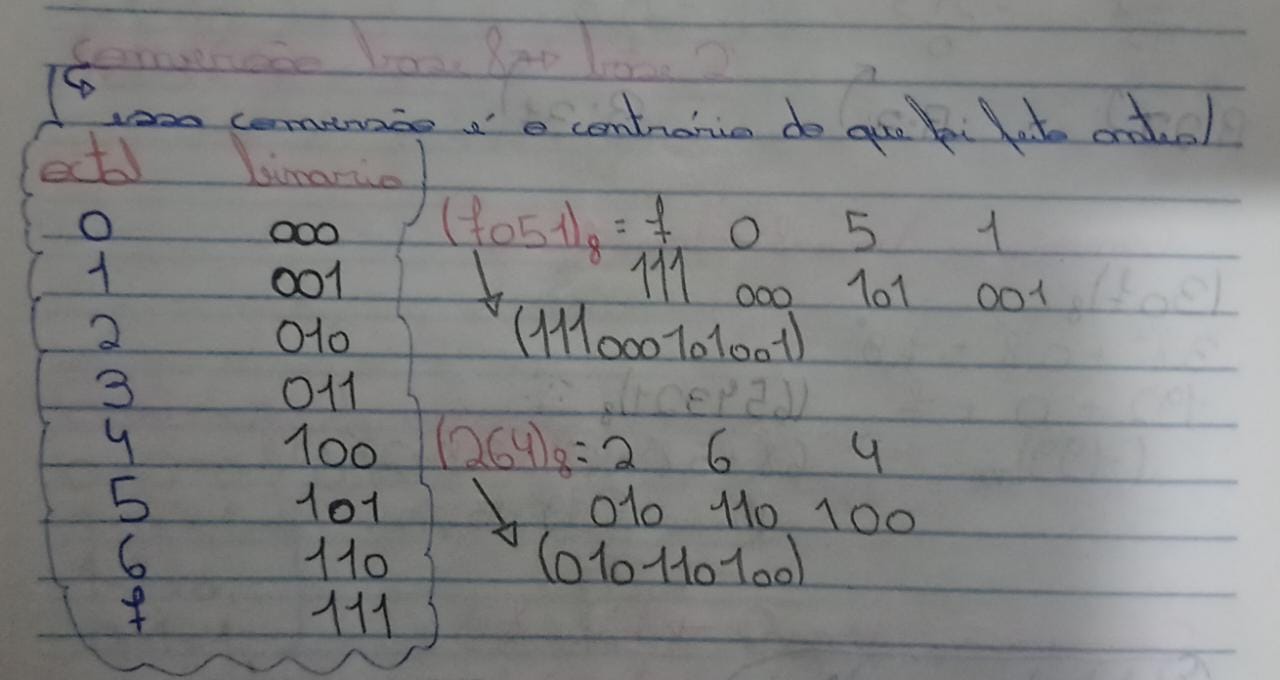 conversão base 8 → base 2
↳ essa conversão é o contrário do que foi feito antes!
octal binario
0 000
1 001
2 010
3 011
4 100
5 101
6 110
7 111
(7051)₈ = 7 0 5 1
111 000 101 001
(111000101001)
(264)₈ = 2 6 4
010 110 100
(010110100)